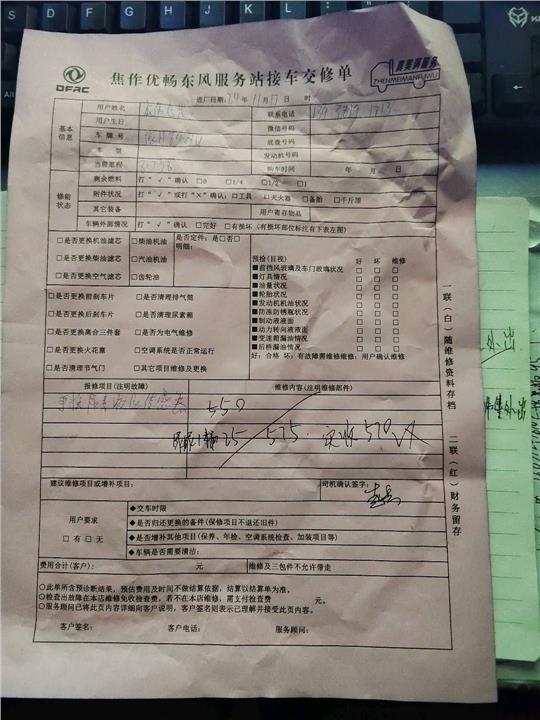 DFAC
焦作优畅东风服务站接车交修单
真美满服务
ZHENMEIMANFUWU
进厂日期: 年 11月17日 时
基本信息
用户姓名
联系电话
用户生日
微信号码
车牌号
底盘号码
车型
发动机号码
当前里程
购车时间 年 月 日
修前状态
剩余燃料 打“√”确认 □0 □1/4 □1/2 □1
附件状况 打“√”或打“×”确认:□工具 □灭火器 □备胎 □千斤顶
其它装备
用户寄存物品
车辆外部情况 打“√”确认 □完好 □有损坏(有损坏部位标注有下表左图)
□是否更换机油滤芯 □柴油机油 是否定件:是□否□
□是否更换柴油滤芯 □汽油机油 明细:
□是否更换空气滤芯 □齿轮油
□是否更换前刹车片 □是否清理排气筒
□是否更换后刹车片 □是否清理尿素箱
□是否更换离合三件套 □是否为电气维修
□是否更换火花塞 □空调系统是否正常运行
□是否清理节气门 □其它项目维修及更换
预检(目视) 好 坏 维修
■前挡风玻璃及车门玻璃状况 □ □ □
■灯具情况 □ □ □
■油量状况 □ □ □
■轮胎状况 □ □ □
■发动机机油状况 □ □ □
■防冻防锈瓶状况 □ □ □
■制动液液面 □ □ □
■动力转向液液面 □ □ □
■变速箱漏油情况 □ □ □
■后桥漏油情况 □ □ □
好:合格 坏:有故障需维修维修:用户确认维修
报修项目(注明故障)
维修内容(注明维修部件)
550
25 575 实收570
建议维修项目或增补项目:
司机确认签字:
用户要求
□有 □无
◆交车时限
◆是否归还更换的备件(保修项目不退还旧件)
◆是否增补其他项目(保养、年检、空调系统检查、加装项目等)
◆车辆是否需要清洁:
费用合计(客户): 元
维修及三包件不允许带走
○此单所含预诊断结果,预估费用及时间不做结算依据,结算以结算单为准。
○检查出故障在本店维修免收检查费,若不在本店维修,需支付检查费 元。
○服务顾问已将此页内容详细向客户说明,客户签名则表示已理解并接受此页内容。
客户签名: 客户电话: 服务顾问:
一联(白)随维修资料存档 二联(红)财务留存
外出